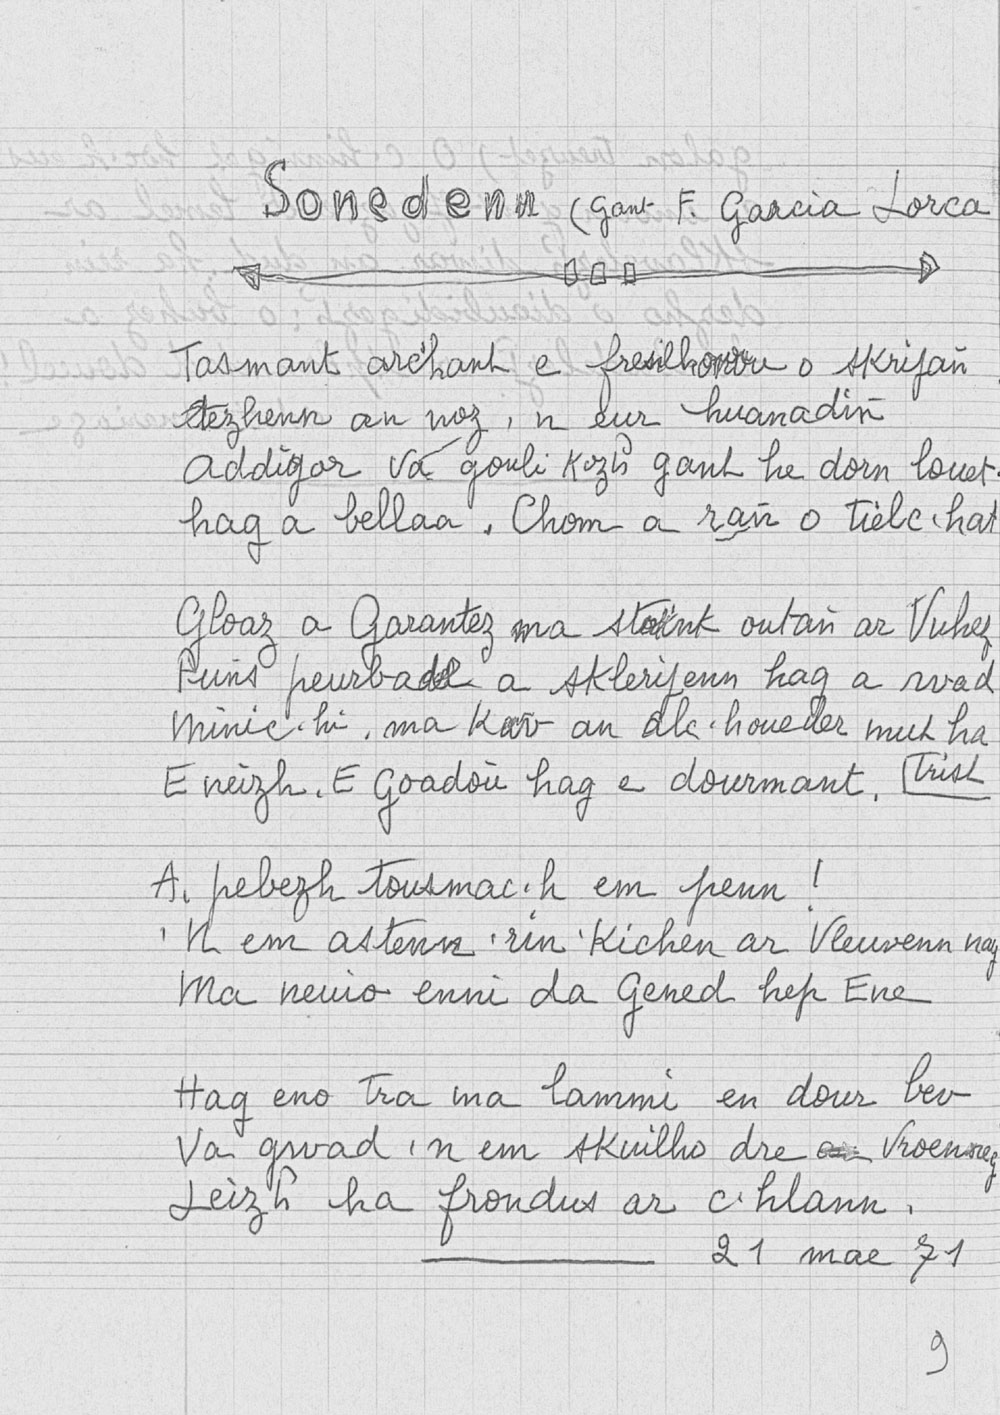 Sonedenn (gant F. Garcia Lorca
Tasmant arc'hant e o skrijañ
etezhenn an noz, 'n eur huanadiñ
Addigor va gouli kozh gant he dorn louet.
hag a bellaa. Chom a rañ o tielc'hat
Gloaz a Garantez ma outañ ar Vuhez
Puñs peurbadel a sklerijenn hag a wad
Minic'hi, ma kav an alc'houeder mut ha
E neizh. E Goadoù hag e dourmant. Trist
A, pebezh tousmac'h em penn !
'N em astenn 'rin 'kichen ar Vleuvenn
Ma neuio enni da Gened hep Ene
Hag eno tra ma lammi en dour bev
Va gwad 'n em skuilho dre
Leizh ha frondus ar c'hlann.
21 mae 71
9